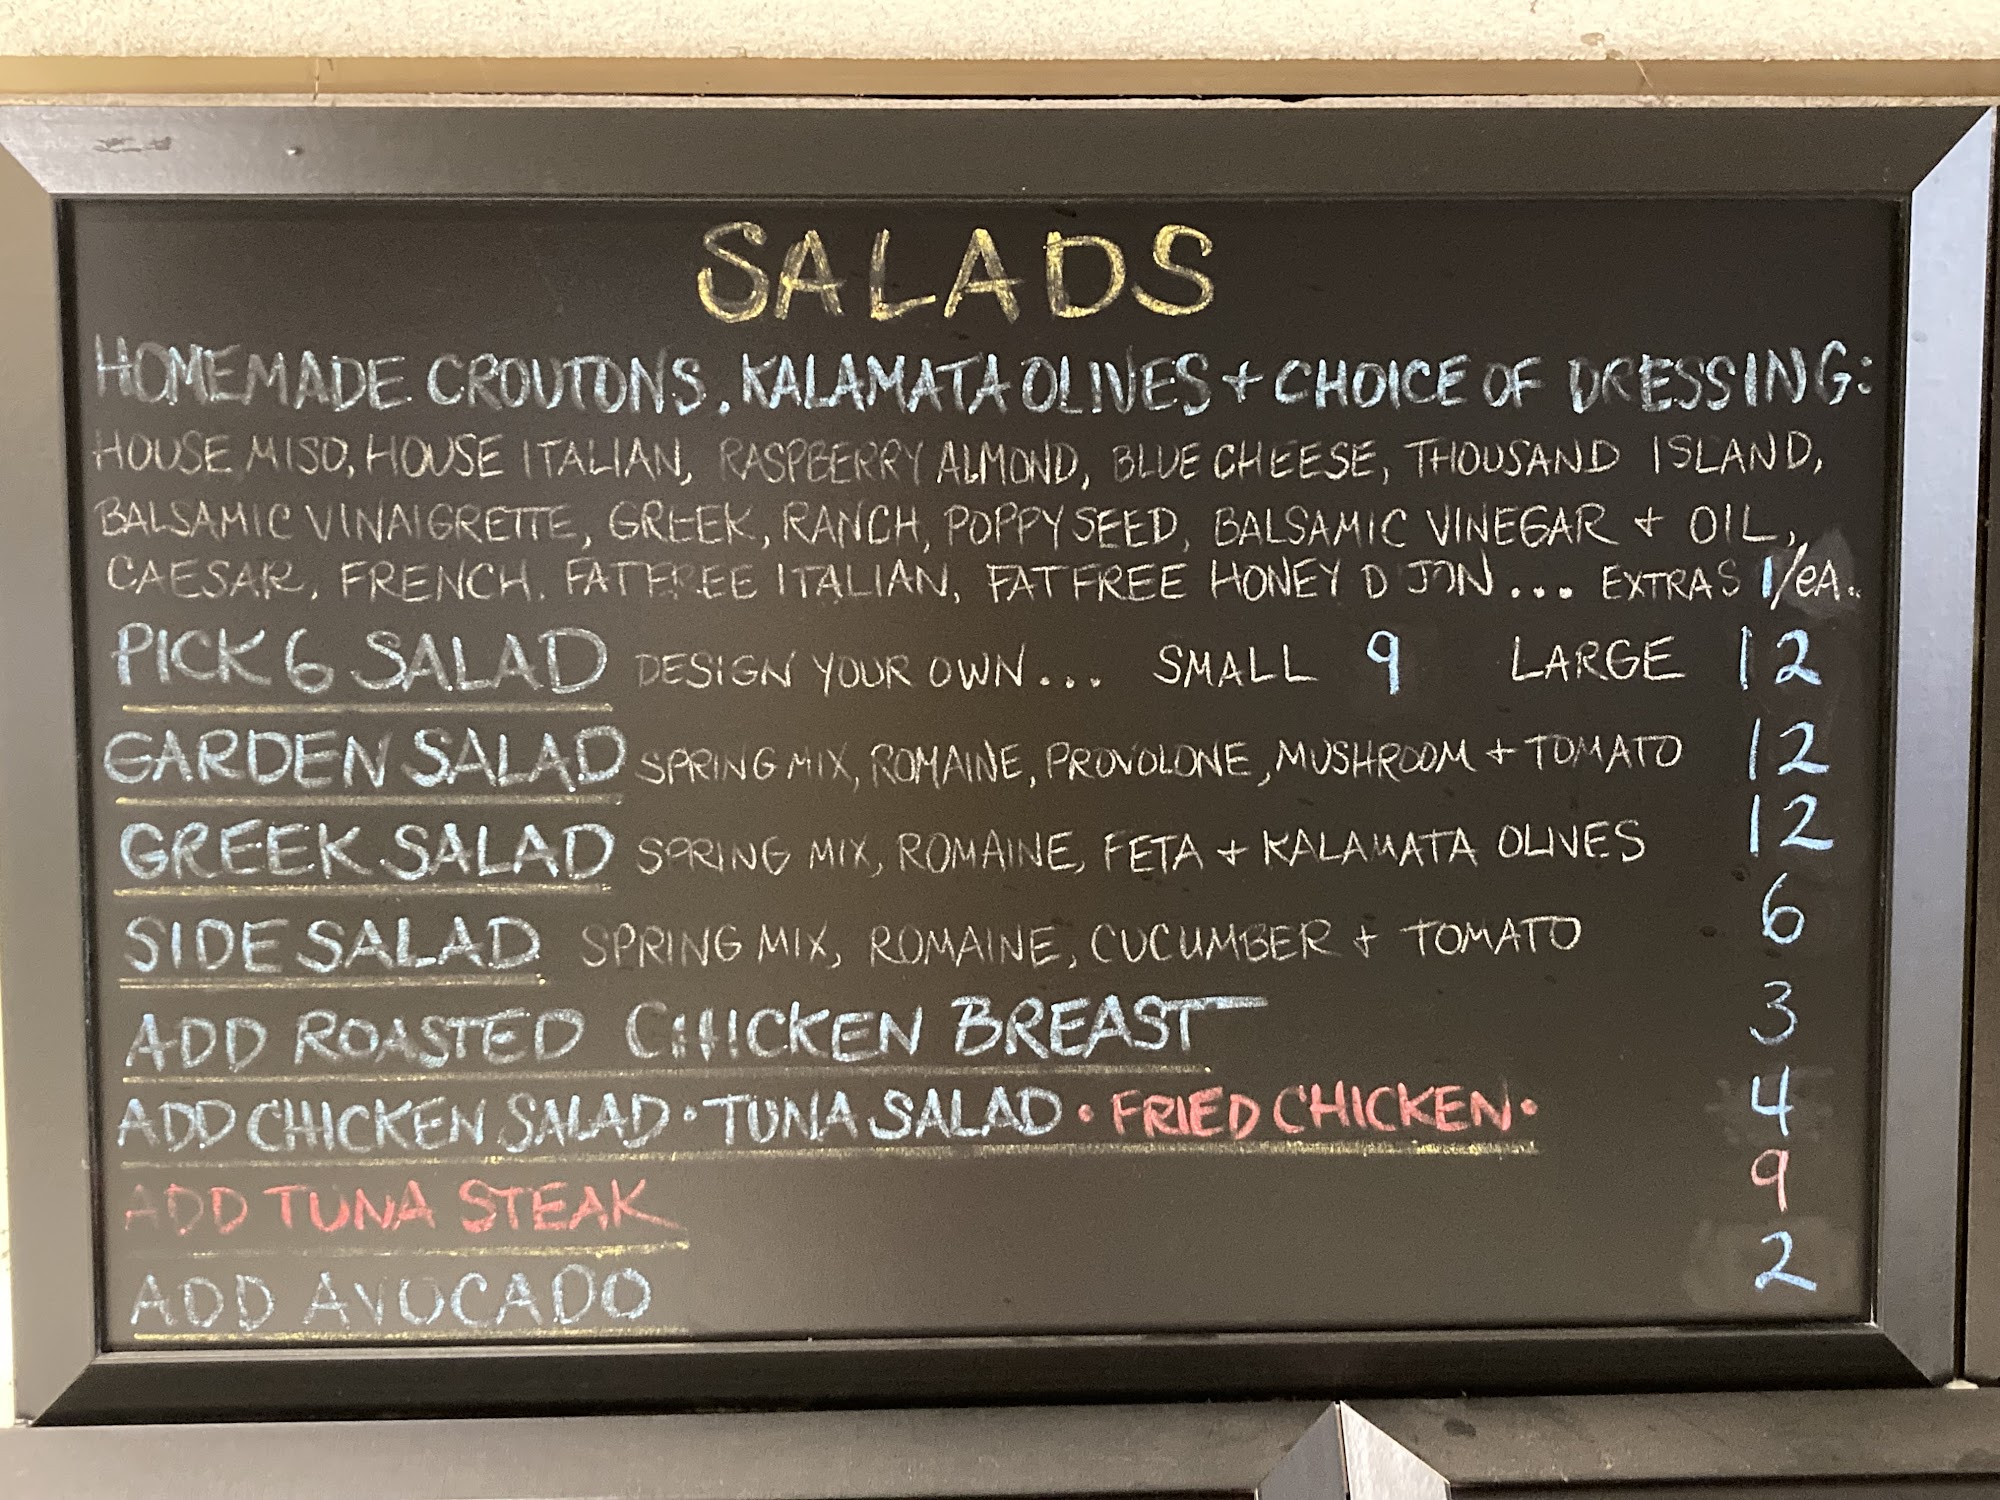 SALADS
HOMEMADE CROUTONS, KALAMATA OLIVES + CHOICE OF DRESSING:
HOUSE MISO, HOUSE ITALIAN, RASPBERRY ALMOND, BLUE CHEESE, THOUSAND ISLAND,
BALSAMIC VINAIGRETTE, GREEK, RANCH, POPPYSEED, BALSAMIC VINEGAR + OIL,
CAESAR, FRENCH, FAT FREE ITALIAN, FAT FREE HONEY DIJON... EXTRAS 1/eA.
PICK 6 SALAD DESIGN YOUR OWN... SMALL 9 LARGE 12
GARDEN SALAD SPRING MIX, ROMAINE, PROVOLONE, MUSHROOM + TOMATO 12
GREEK SALAD SPRING MIX, ROMAINE, FETA + KALAMATA OLIVES 12
SIDE SALAD SPRING MIX, ROMAINE, CUCUMBER + TOMATO 6
ADD ROASTED CHICKEN BREAST 3
ADD CHICKEN SALAD • TUNA SALAD • FRIED CHICKEN • 4
ADD TUNA STEAK 9
ADD AVOCADO 2